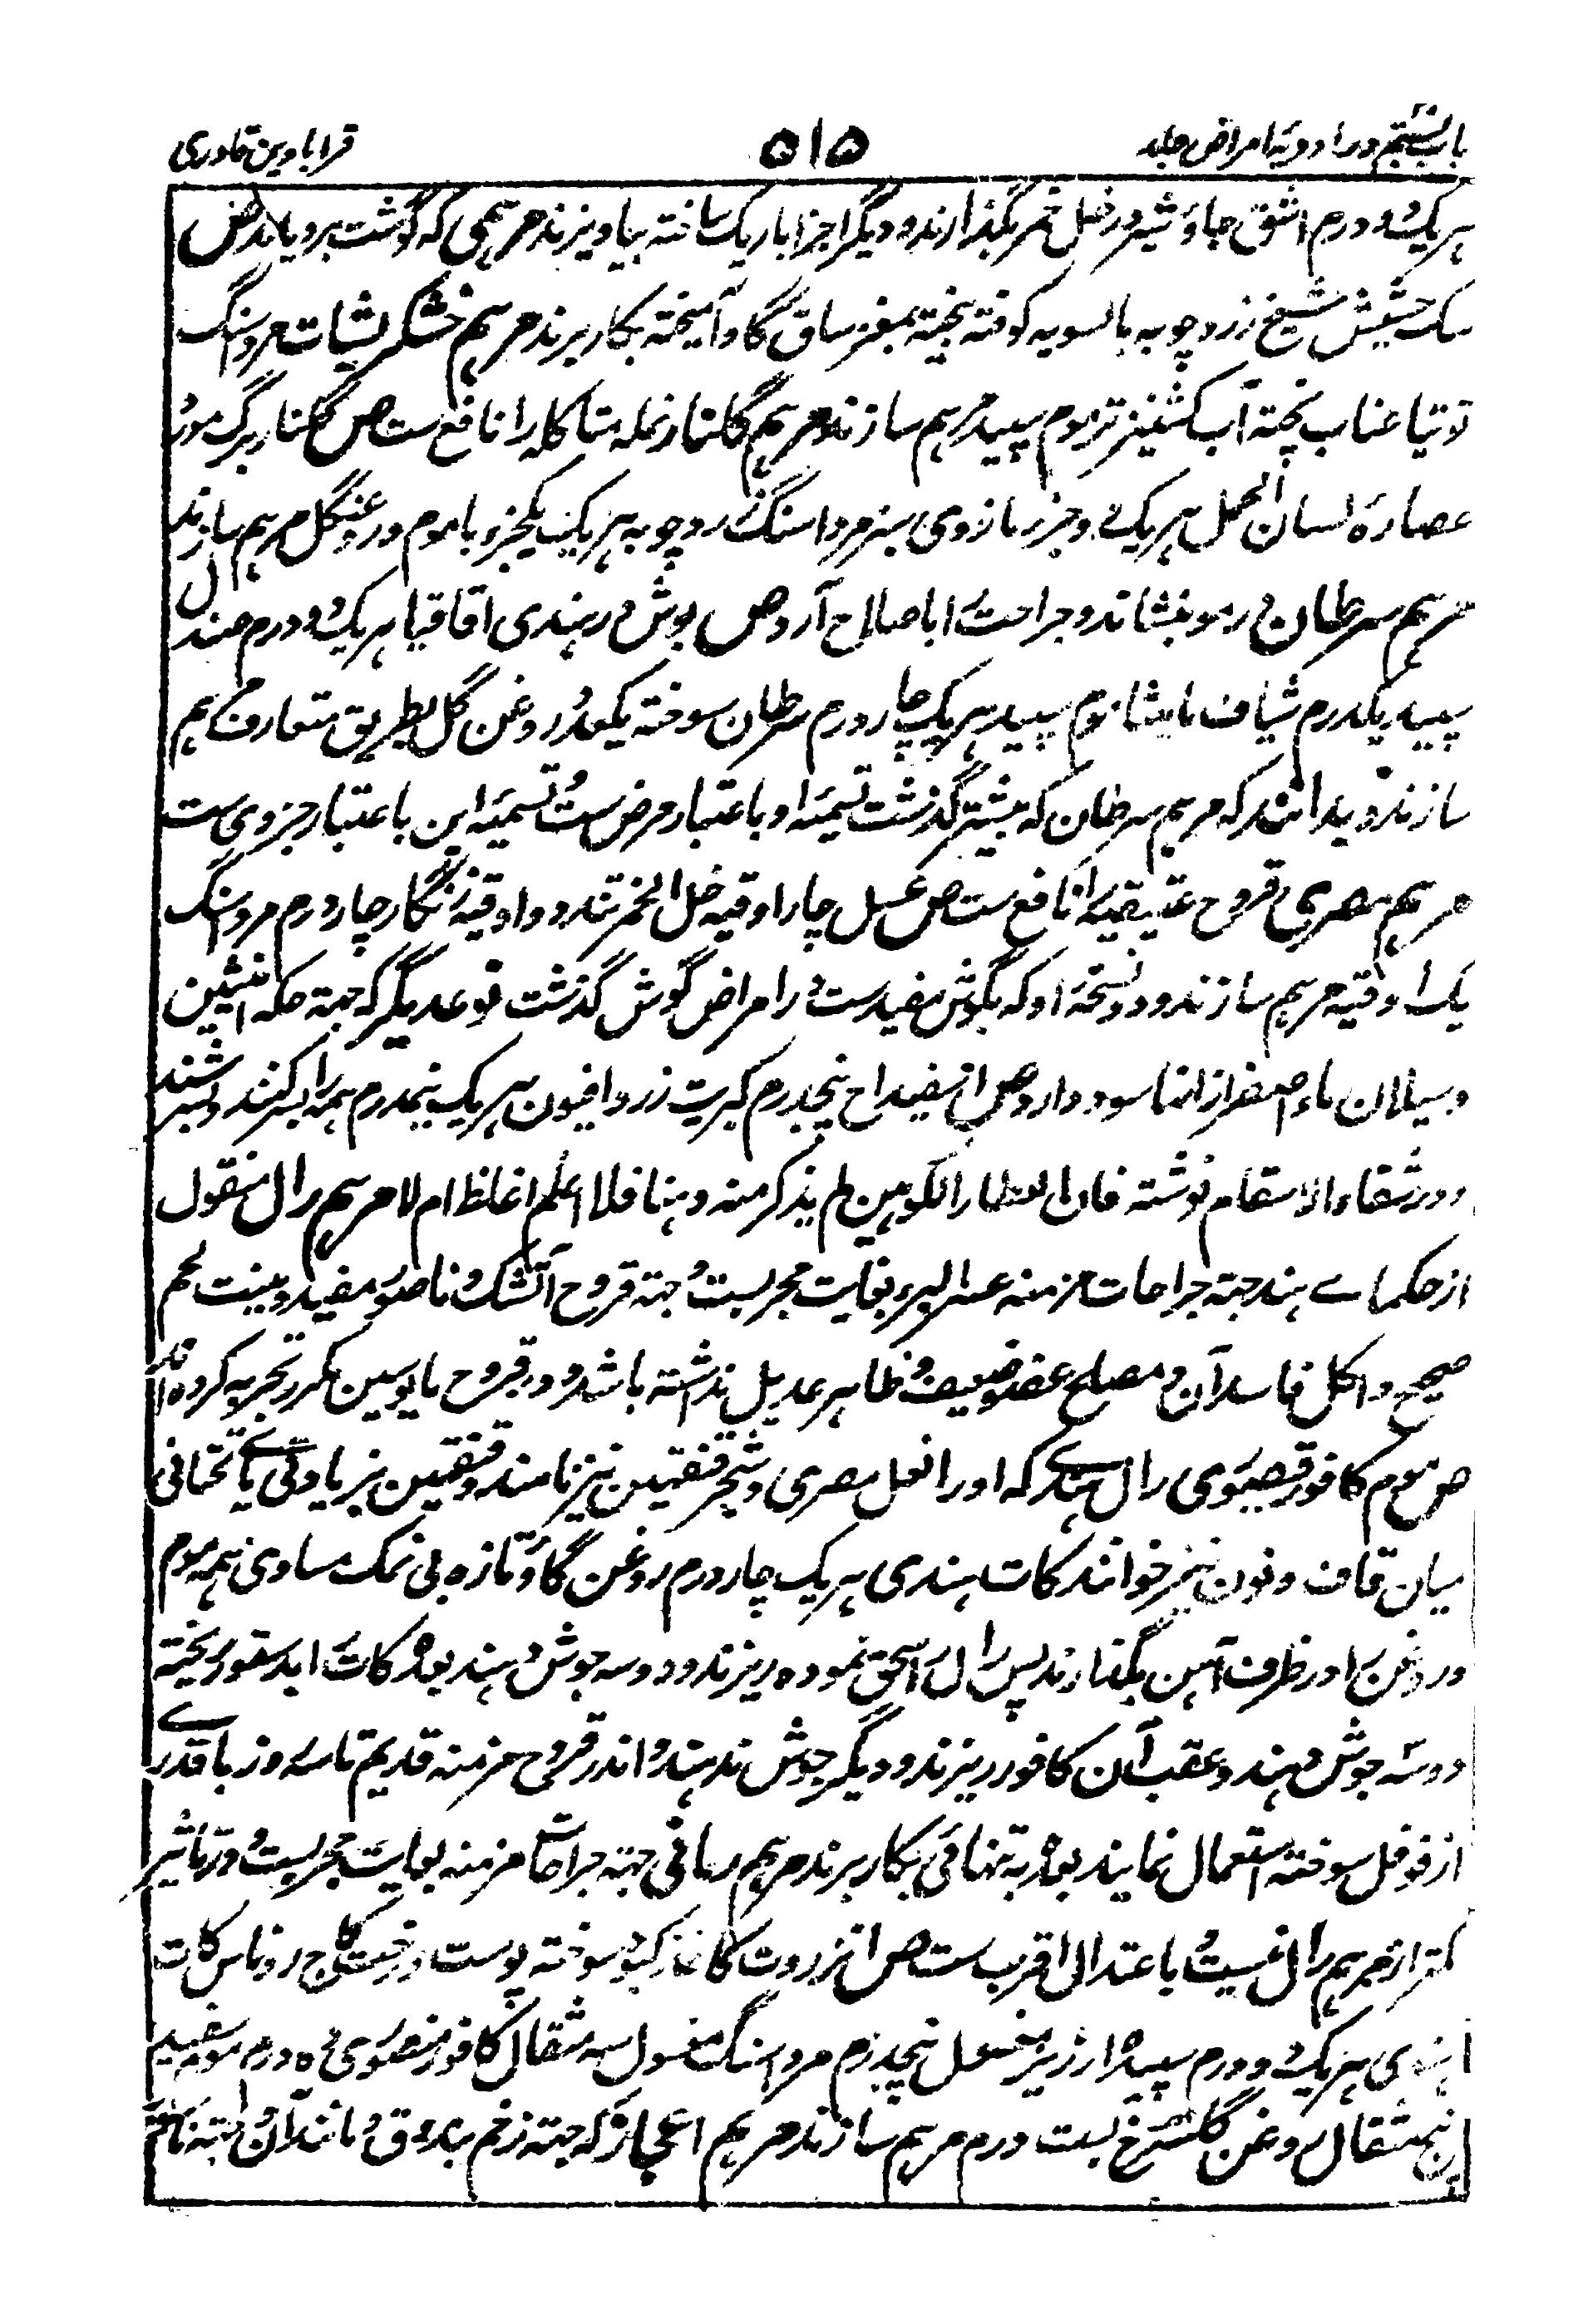 باب بستم در ادویه امراض جلد ۵۱۵ قرابادین قادری
هر یک دو درم اشق جاوشیر در خل خمر بگذارند و دیگر اجزا باریک ساخته بیامیزند مرهمی که گوشت برویاند ص
سک حشیش شیخ زردچوبه بالسویه کوفته بیخته بمغز ساق گاو آمیخته بکار برند مرهم خشکریشات مرداسنگ
توتیا عناب پخته آب کشنیز تر موم سپید مرهم سازند مرهم گلنار نمله متاکله را نافع ست ص گلنار برگ مورد
عصاره لسان الحمل هر یک دو جزر مازوی سبز مرداسنگ زردچوبه هر یک یکجزو با موم و روغن گل مرهم سازند
مرهم سرطان ورم بنشاند و جراحت را باصلاح آرد ص بوش دربندی اقاقیا هر یک دو درم صندل
سپید یکدرم شیاف مامیثا موم سپید هر یک چار درم سرطان سوخته یکعدد روغن گل بطریق متعارف مرهم
سازند و بدانند که مرهم سرطان که پیشتر گذشت تسمیه او باعتبار مرض ست و تسمیه این باعتبار جزوی ست
مرهم مصری قروح عتیقه را نافع ست ص عسل چار اوقیه خل الخمر تند دو اوقیه زنگار چار درم مرداسنگ
یک اوقیه مرهم سازند و دو نسخه او که بگوش مفید ست در امراض گوش گذشت نوعدیگر که جهته حکه انثیین
و سیلان ماء اصفر از انها سود دارد ص اسفیداج پنجدرم کبریت زرد افیون هر یک نیمدرم همه را بسرکنند و بسرشند
و در شفاء الاسقام نوشته فان العطار الکوهین لم یذکر منه و هنا فلا اعلم اغلط ام لا مرهم رال منقول
از حکمای هند جهته جراحات مزمنه عسر البرء بغایت مجربست و جهته قروح آتشک و ناصور مفید و منبت لحم
صحیح و اکل فاسد آن و مصلح عضو ضعیف و ظاهر عدیل نداشته باشد و در قروح مایوسین مکرر تجربه کرده اند
ص موم کافور قیصوری رال هندی که او را نعل مصری و شجر قنقتین نیز نامند و قنقین بزیادتی یای تحتانی
میان قاف و نون نیز خوانند کات هندی هر یک چار درم روغن گاو تازه بی نمک مساوی همه موم
و روغن را در ظرف آهن بگذارند پس رال را سحق نموده ریزند و دو سه جوش دهند بعد کات را بدستور ریخته
دو سه جوش دهند و عقب آن کافور ریزند و دیگر جوش ندهند و اندر قروح مزمنه قدیم تا سه روز با قدری
از فوفل سوخته استعمال نمایند بعد به تنهائی بکار برند مرهم رسافی جهته جراحات مزمنه بغایت مجربست و در تاثیر
کمتر از مرهم رال نیست و باعتدال اقرب ست ص انزروت کاغذ کبود سوخته پوست درخت کاج روناس کات
هندی هر یک دو درم سپیده ارزیز مغسول پنجدرم مرداسنگ مغسول سه مثقال کافور قیصوری ده درم موم سفید
پنجمثقال روغن گلسرخ بست درم مرهم سازند مرهم اعجاز که جهته زخم بندوق و مانند آن البته نافع